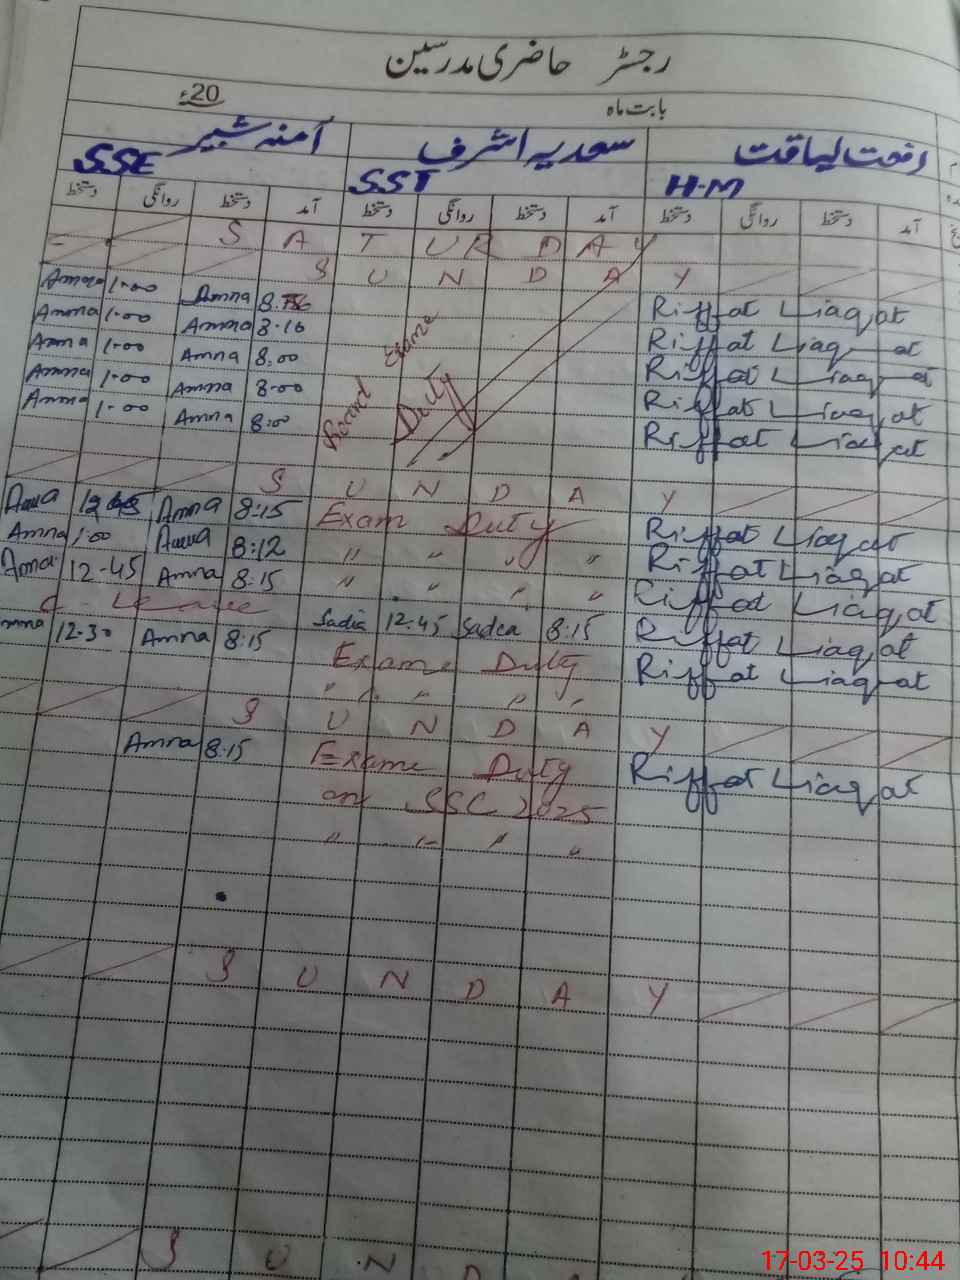 رجسٹر حاضری مدرسین
بابت ماہ 20ء
رفعت لیاقت سعدیہ اشرف آمنہ شبیر
H.M SST SSE
آمد دستخط روانگی دستخط آمد دستخط روانگی دستخط آمد دستخط روانگی دستخط
S A T U R D A Y
S U N D A Y
Amna 1.00 Amna Riffat Liaqat
Amna 1.00 Amna 8.10 Riffat Liaqat
Amna 1.00 Amna 8.00 Riffat Liaqat
Amna 1.00 Amna 8.00 Riffat Liaqat
Amna 1.00 Amna 8.00 Riffat Liaqat
Board Exame Duty
S U N D A Y
Amna 12 Amna 8:15 Exam Duty Riffat Liaqat
Amna 1.00 Amna 8:12 " " " " Riffat Liaqat
Amna 12-45 Amna 8:15 " " " " Riffat Liaqat
C-Leave Sadia 12:45 Sadea 8:15 Riffat Liaqat
mna 12.30 Amna 8:15 Exame Duty Riffat Liaqat
" " " " "
S U N D A Y
Amna 8.15 Exame Duty Riffat Liaqat
on SSC 2025
" " " "
S U N D A Y
S U N D A
17-03-25 10:44